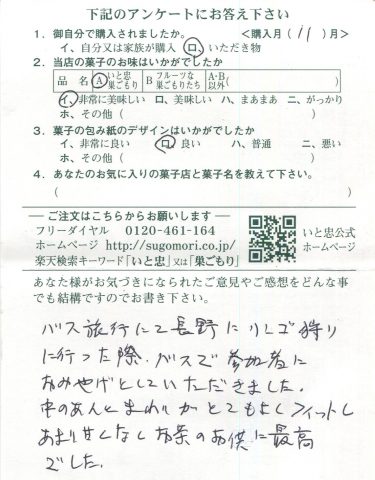 下記のアンケートにお答え下さい
1. 御自分で購入されましたか。 <購入月( 11 )月>
イ、自分又は家族が購入 ロ、いただき物
2. 当店の菓子のお味はいかがでしたか
品 名 A いと忠巣ごもり B フルーツな巣ごもりたち A・B以外( )
イ、非常に美味しい ロ、美味しい ハ、まあまあ ニ、がっかり
ホ、その他 (
3. 菓子の包み紙のデザインはいかがでしたか
イ、非常に良い ロ、良い ハ、普通 ニ、悪い
ホ、その他 (
4. あなたのお気に入りの菓子店と菓子名を教えて下さい。
( )
― ご注文はこちらからお願いします ―
フリーダイヤル 0120-461-164
ホームページ http://sugomori.co.jp/
楽天検索キーワード「いと忠」又は「巣ごもり」
いと忠公式
ホームページ
あなた様がお気づきになられたご意見やご感想をどんな事
でも結構ですのでお書き下さい。
バス旅行にて長野にりんご狩り
に行った際、バスで参加者に
おみやげとしていただきました。
中のあんとまわりがとてもよくフィットし
あまり甘くなくお茶のお供に最高
でした。